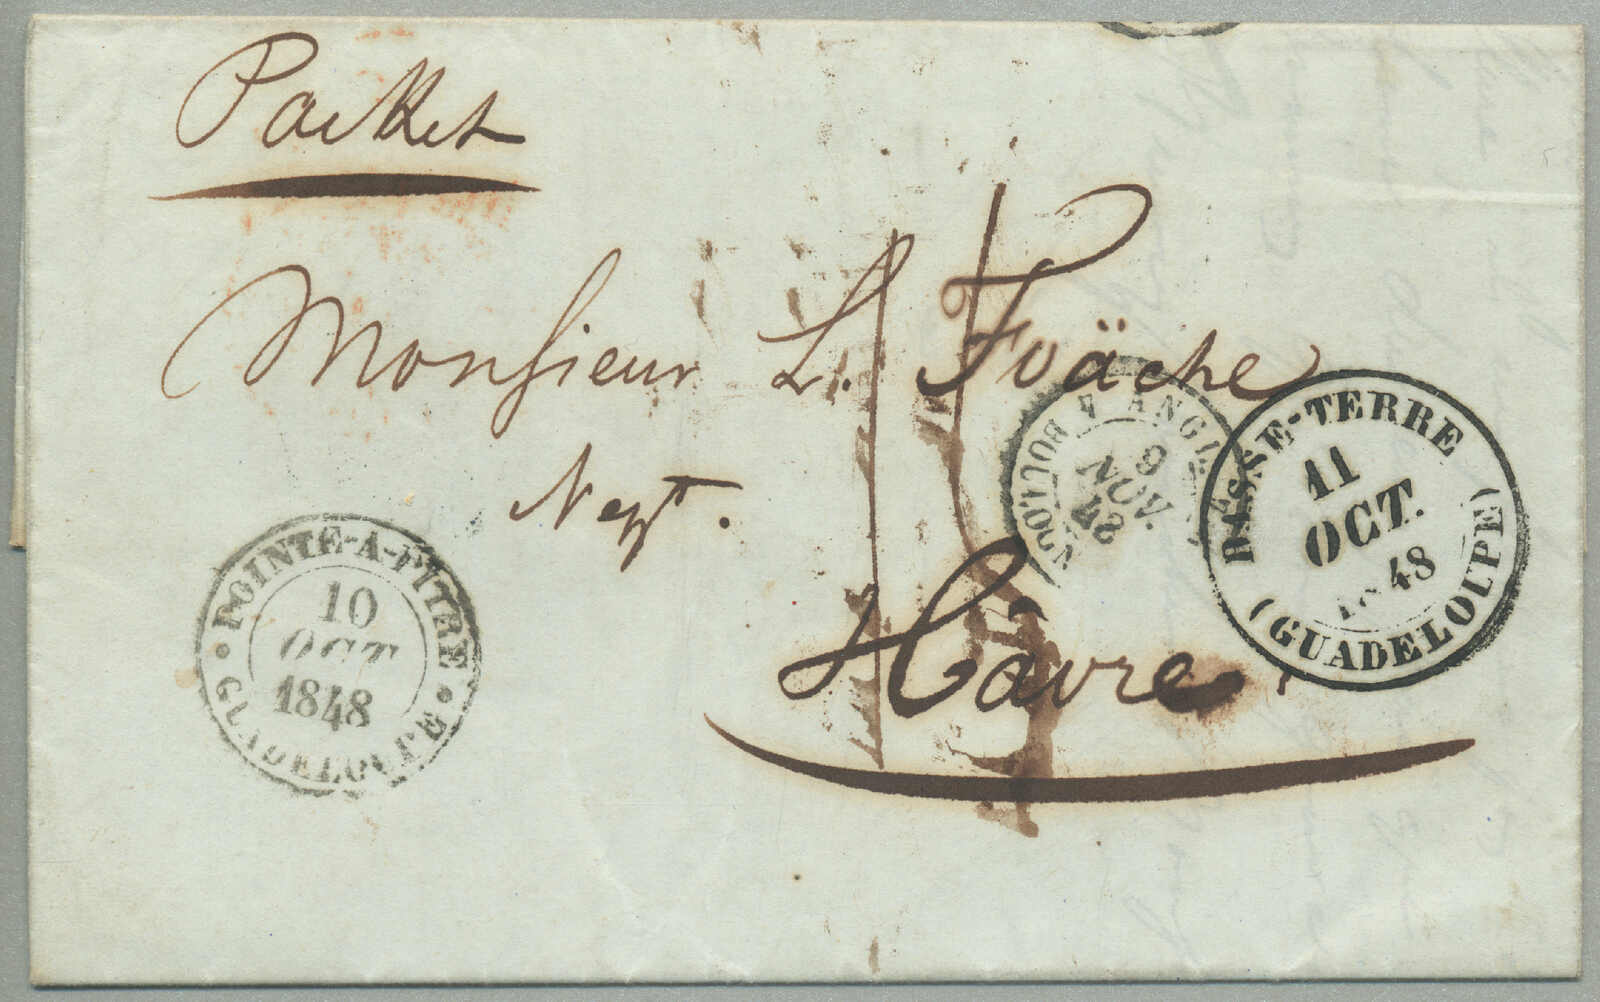 Packet
Monsieur L. Foäche
Negt.
Hâvre
POINTE-A-PITRE
10
OCT
1848
GUADELOUPE
ANGL.
BOULOGN
9
NOV.
48
BASSE-TERRE
11
OCT.
1848
(GUADELOUPE)